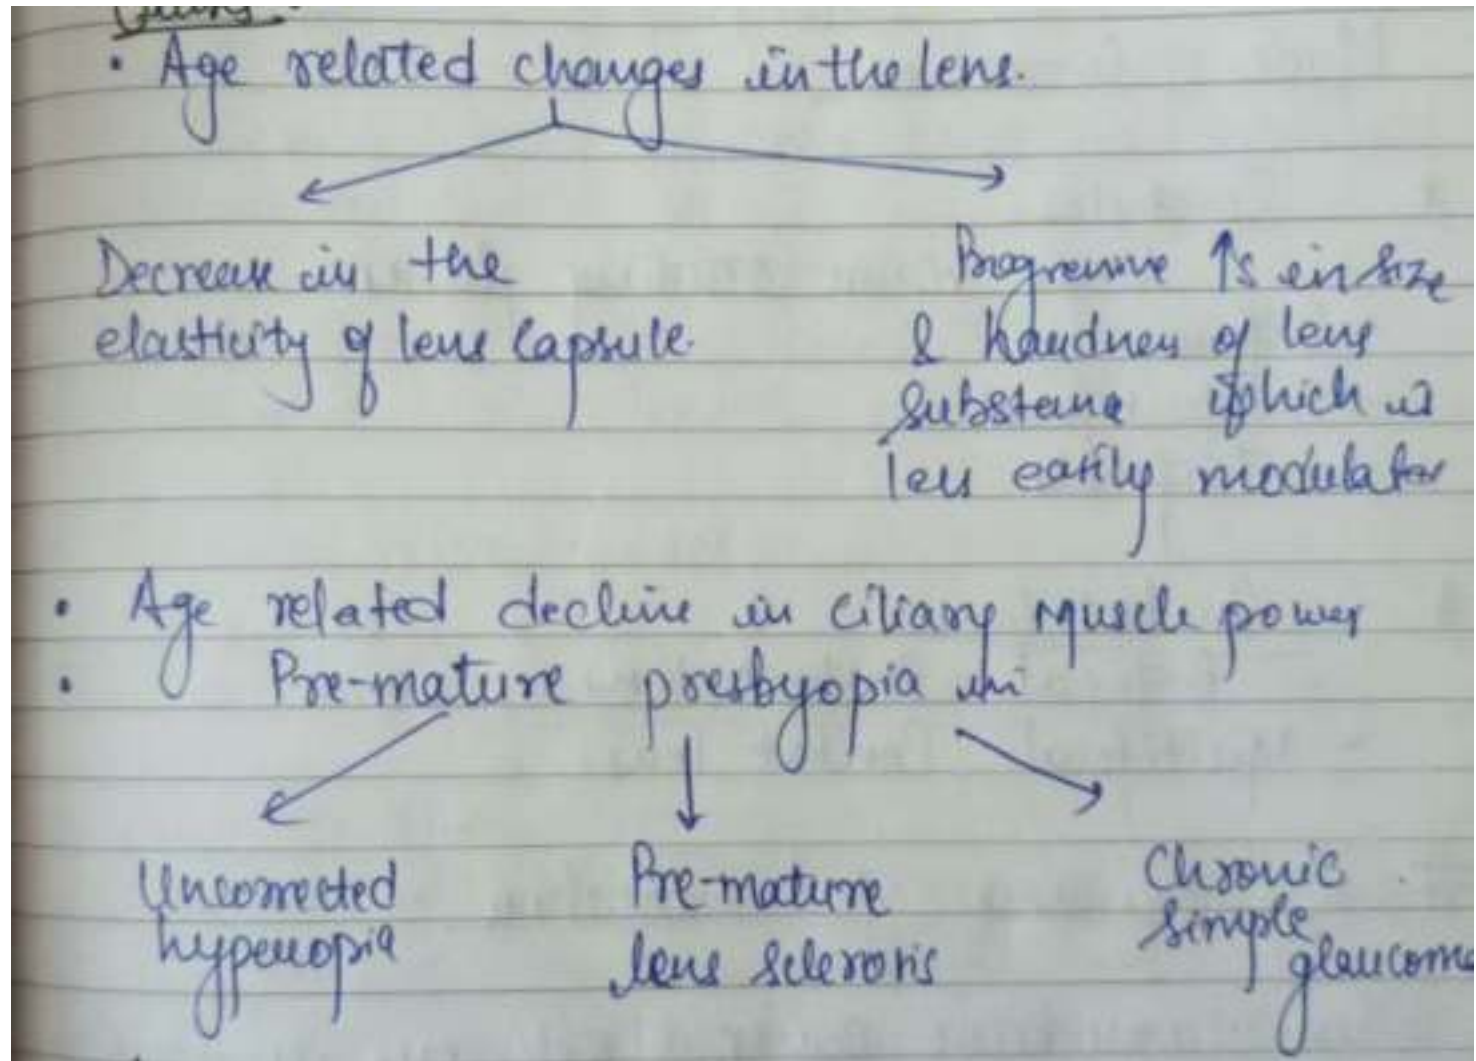 • Age related changes in the lens.
Decrease in the
elasticity of lens capsule.
Progressive ↑s in size
& hardness of lens
substance which is
less easily modulator
• Age related decline in ciliary muscle power
• Pre-mature presbyopia in
Uncorrected
hyperopia
Pre-mature
lens sclerosis
Chronic
simple
glaucoma